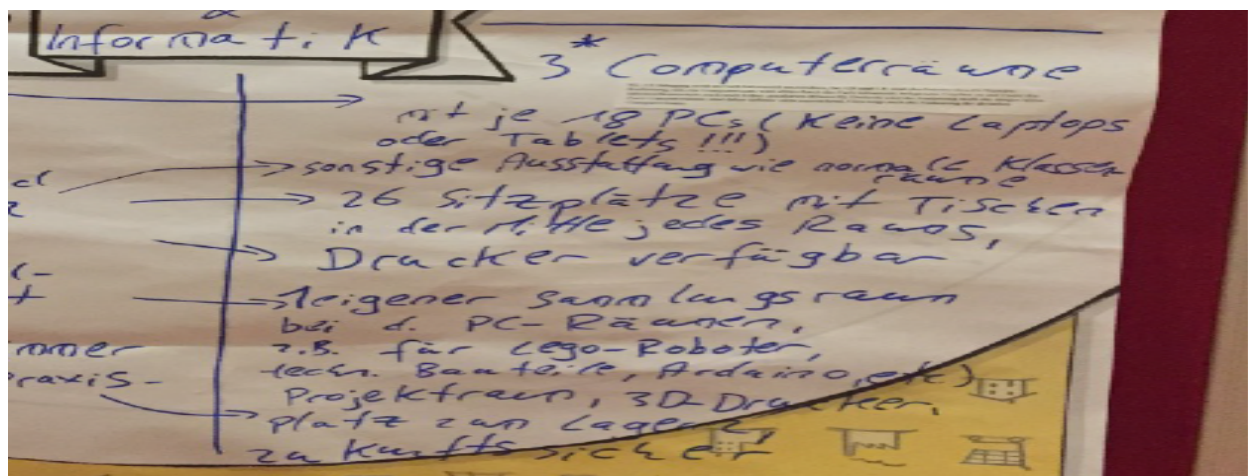 Informatik
3* Computerräume
mit je 18 PCs (Keine Laptops
oder Tablets !!!)
sonstige Ausstattung wie normale Klassen
räume
26 Sitzplätze mit Tischen
in der Mitte jedes Raums,
Drucker verfügbar
1 eigener Sammlungsraum
bei d. PC-Räumen,
z.B. für Lego-Roboter,
techn. Bauteile, Arduino, etc)
Projektraum, 3D-Drucker,
platz zum Lagern,
zukunftssicher!
mmer
raxis-